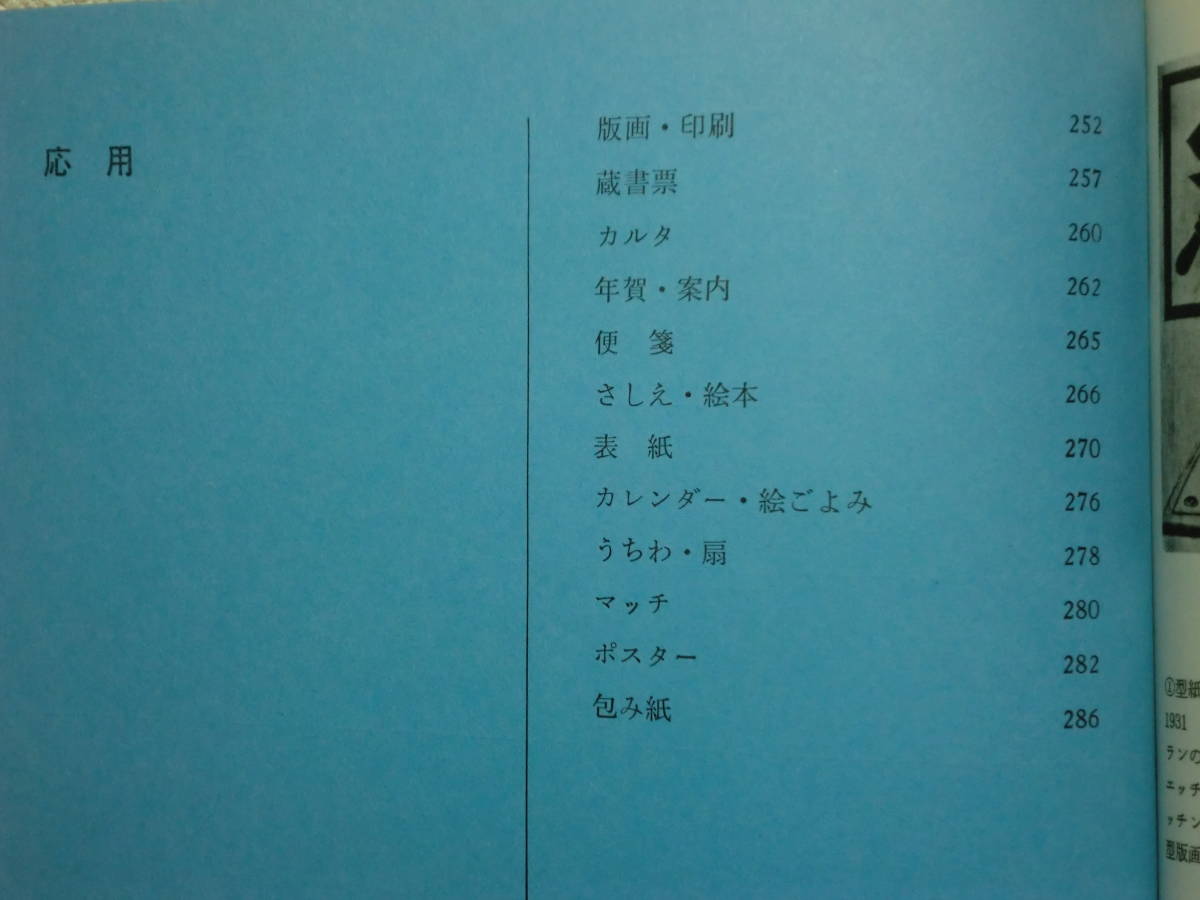 応 用
版画・印刷 252
蔵書票 257
カルタ 260
年賀・案内 262
便 箋 265
さしえ・絵本 266
表 紙 270
カレンダー・絵ごよみ 276
うちわ・扇 278
マッチ 280
ポスター 282
包み紙 286
①型紙
1931
ランの
エッチ
ッチン
型版画